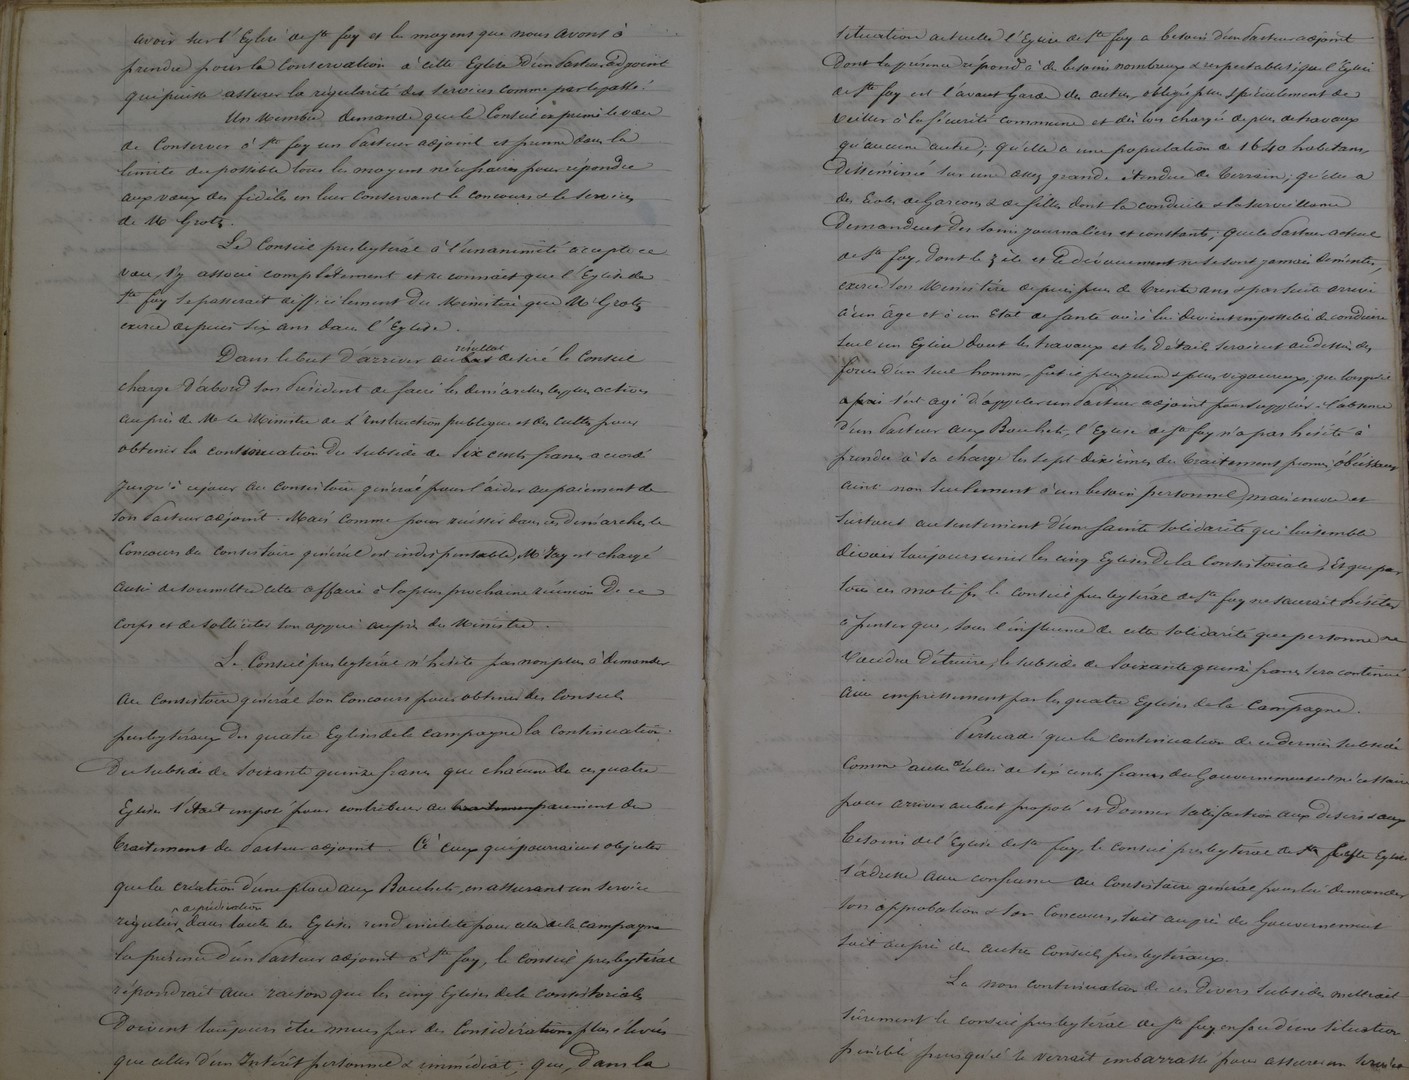 avoir sur l'Eglise de Ste foy et les moyens que nous avons à
prendre pour la Conservation à cette Eglise d'un Pasteur adjoint
qui puisse assurer la régularité des services comme par le passé.
Un Membre demande que le Conseil exprime le vœu
de Conserver à Ste foy un Pasteur adjoint et prenne dans la
limite du possible tous les moyens nécessaires pour répondre
aux vœux des fidèles en leur Conservant le concours & le services
de Mr Grotz.
Le Conseil presbytéral à l'unanimité accepte ce
vœu, s'y associe complètement et reconnait que l'Eglise de
Ste foy se passerait difficilement du Ministère que Mr Grotz
exerce depuis six ans dans l'Eglise.
Dans le but d'arriver au résultat désiré le Conseil
charge d'abord son Président de faire les démarches les plus actives
auprès de Mr le Ministre de l'Instruction publique et des Cultes pour
obtenir la continuation du subside de Six cents francs accordé
jusqu'à ce jour au Consistoire général pour l'aider au paiement de
son Pasteur adjoint. Mais comme pour réussir dans ces démarches le
Concours du Consistoire général est indispensable, Mr Jay est chargé
aussi de soumettre cette affaire à la plus prochaine réunion de ce
Corps et de solliciter son appui auprès du Ministre.
Le Conseil presbytéral n'hésite pas non plus à demander
au Consistoire général son Concours pour obtenir des Conseils
presbytéraux des quatre Eglises de la Campagne la Continuation
du subside de Soixante quinze francs que chacune de ces quatre
Eglises s'était imposé pour contribuer au paiement du
traitement du Pasteur adjoint. A ceux qui pourraient objecter
que la création d'une place aux Bouhets, en assurant un service
régulier de prédication dans toutes les Eglises rend inutile pour celles de la campagne
la présence d'un Pasteur adjoint à Ste foy, le Conseil presbytéral
répondrait avec raison que les cinq Eglises de la Consistoriale
Doivent toujours être mues par des Considérations plus élevées
que celles d'un Intérêt personnel & immédiat; que, Dans la
situation actuelle l'Eglise de Ste foy a besoin d'un Pasteur adjoint
Dont la présence répond à de besoins nombreux & respectables; que l'Eglise
de Ste foy est l'avant Garde des autres, obligée plus spécialement de
veiller à la Sécurité commune et dès lors chargée de plus de travaux
qu'aucune autre; qu'elle a une population de 1640 habitans,
Disséminée sur une assez grande étendue de terrain; qu'elle a
des Ecoles de Garçons & de filles dont la conduite & la surveillance
Demandent des soins journaliers et constants, que le Pasteur actuel
de Ste foy, dont le zèle et le dévouement ne se sont jamais démentis,
exerce son Ministère depuis plus de trente ans & par suite arrive
à un âge et à un Etat de Santé où il lui devient impossible de conduire
seul un Eglise dont les travaux et les détails seraient au dessus des
forces d'un seul homme, fut-il plus jeune & plus vigoureux, que lorsqu'il
s'est agi d'appeler un Pasteur adjoint pour suppléer à l'absence
d'un Pasteur aux Bouhets, l'Eglise de Ste foy n'a pas hésité à
prendre à sa charge les sept dixièmes du traitement promis, obéissant
ainsi non seulement à un besoin personnel, mais encore et
surtout au sentiment d'une sainte solidarité qui lui semble
devoir toujours unir les cinq Eglises de la Consistoriale, Et que par
tous ces motifs, le Conseil presbytéral de Ste foy ne saurait hésiter
à penser que, sous l'influence de cette solidarité que personne ne
voudra détruire, le subside de Soixante quinze francs sera continué
avec empressement par les quatre Eglises de la Campagne.
Persuadé que la continuation de ce dernier subside
Comme aussi de celui de six cents francs du Gouvernement est nécessaire
pour arriver au but proposé et donner satisfaction aux désirs & aux
besoins de l'Eglise de Ste foy, le Conseil presbytéral de cette Eglise
s'adresse avec confiance au Consistoire général pour lui demander
son approbation & son Concours, soit auprès du Gouvernement
soit auprès des autres Conseils presbytéraux.
La non continuation de ces divers subsides mettrait
sûrement le conseil presbytéral de Ste foy en face d'une situation
pénible puisqu'il se verrait embarrassé pour assurer un service